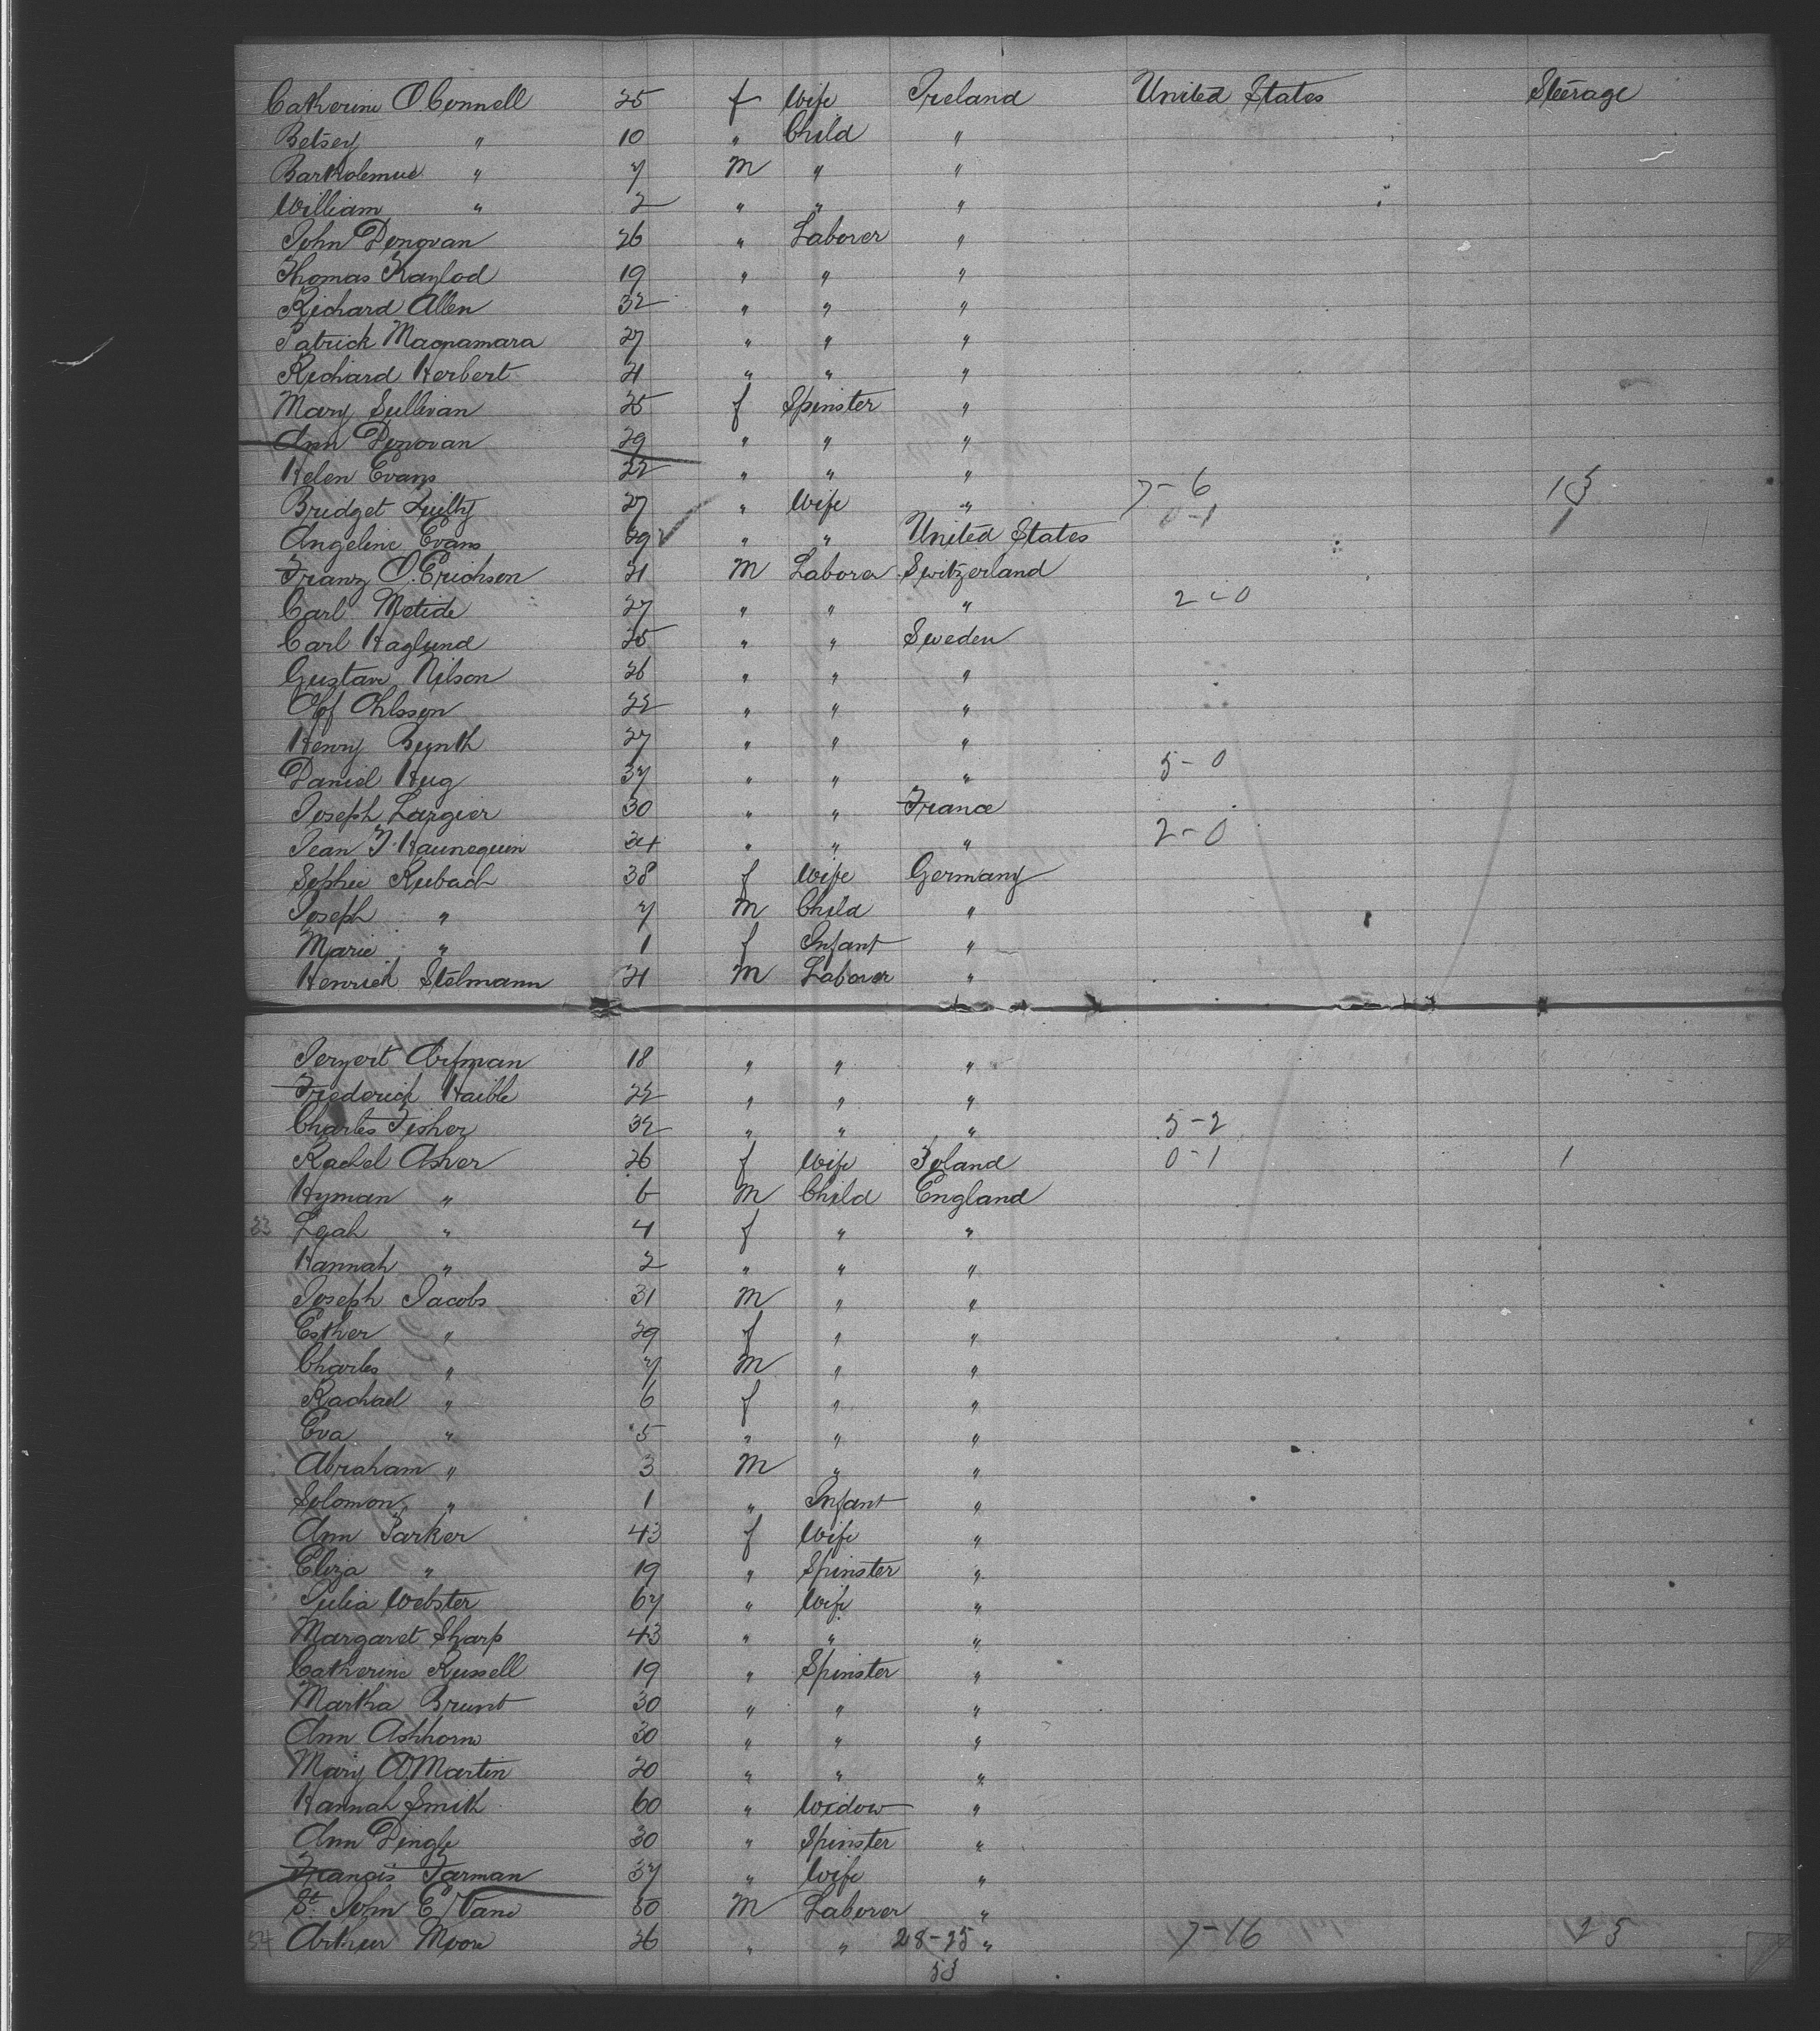 Catherine O Connell 25 f Wife Ireland United States Steerage
Betsey " 10 " Child "
Bartholemue " 7 M " "
William " 2 " " "
John Donovan 26 " Laborer "
Thomas Kaylod 19 " " "
Richard Allen 32 " " "
Patrick Macnamara 27 " " "
Richard Herbert 21 " " "
Mary Sullivan 25 f Spinster "
Ann Donovan 29 " " "
Helen Evans 22 " " " 7-6
Bridget Quilty 27 " Wife " 0-1 1
Angeline Evans 29 " " United States
Franz O. Erickson 21 M Laborer Switzerland
Carl Metide 27 " " " 2-0
Carl Haglund 25 " " Sweden
Gustav Nilson 26 " " "
Olof Ohlsson 22 " " "
Henry Bynth 27 " " "
Daniel Hug 37 " " " 5-0
Joseph Largier 30 " " France
Jean J. Haunequin 24 " " " 2-0
Sophie Rubach 38 f Wife Germany
Joseph " 7 M Child "
Marie " 1 f Infant "
Henrich Stelmann 21 M Laborer "
Arfman 18 " " "
Frederick Haible 22 " " "
Charles Fisher 32 " " " 5-2
Rachel Asher 26 f Wife Poland 0-1 1
Hyman " 6 M Child England
Leah " 4 f " "
Hannah " 2 " " "
Joseph Jacobs 31 M " "
Esther " 29 f " "
Charles " 7 M " "
Rachael " 6 f " "
Eva " 5 " " "
Abraham " 3 M " "
Solomon " 1 " Infant "
Ann Parker 43 f Wife "
Eliza " 19 " Spinster "
Julia Webster 67 " Wife "
Margaret Sharp 43 " " "
Catherine Russell 19 " Spinster "
Martha Brunt 30 " " "
Ann Ashhorn 30 " " "
Mary A Martin 20 " " "
Hannah Smith 60 " Widow "
Ann Dingle 30 " Spinster "
Francis Farman 37 " Wife "
St. John E Vane 50 M Laborer "
54 Arthur Moore 26 " " 28-25 " 7-16 23
53